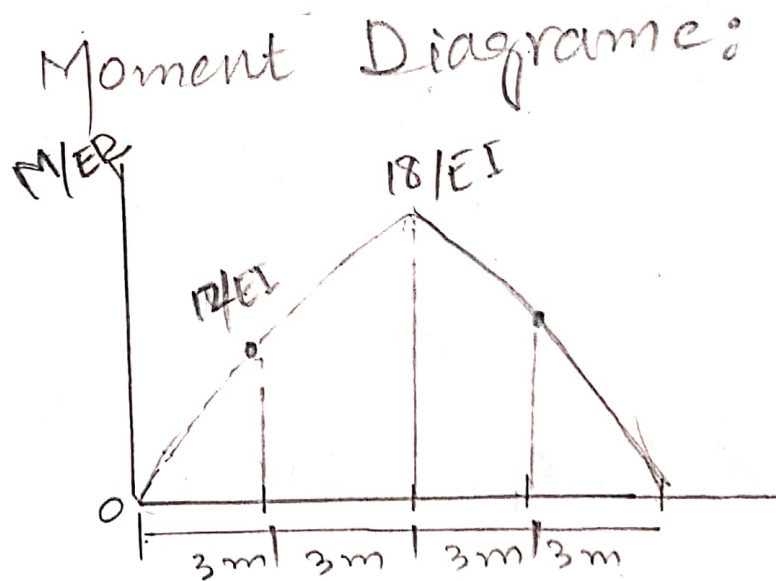 Moment Diagrame:
M/EI
18/EI
12/EI
0
3m 3m 3m 3m